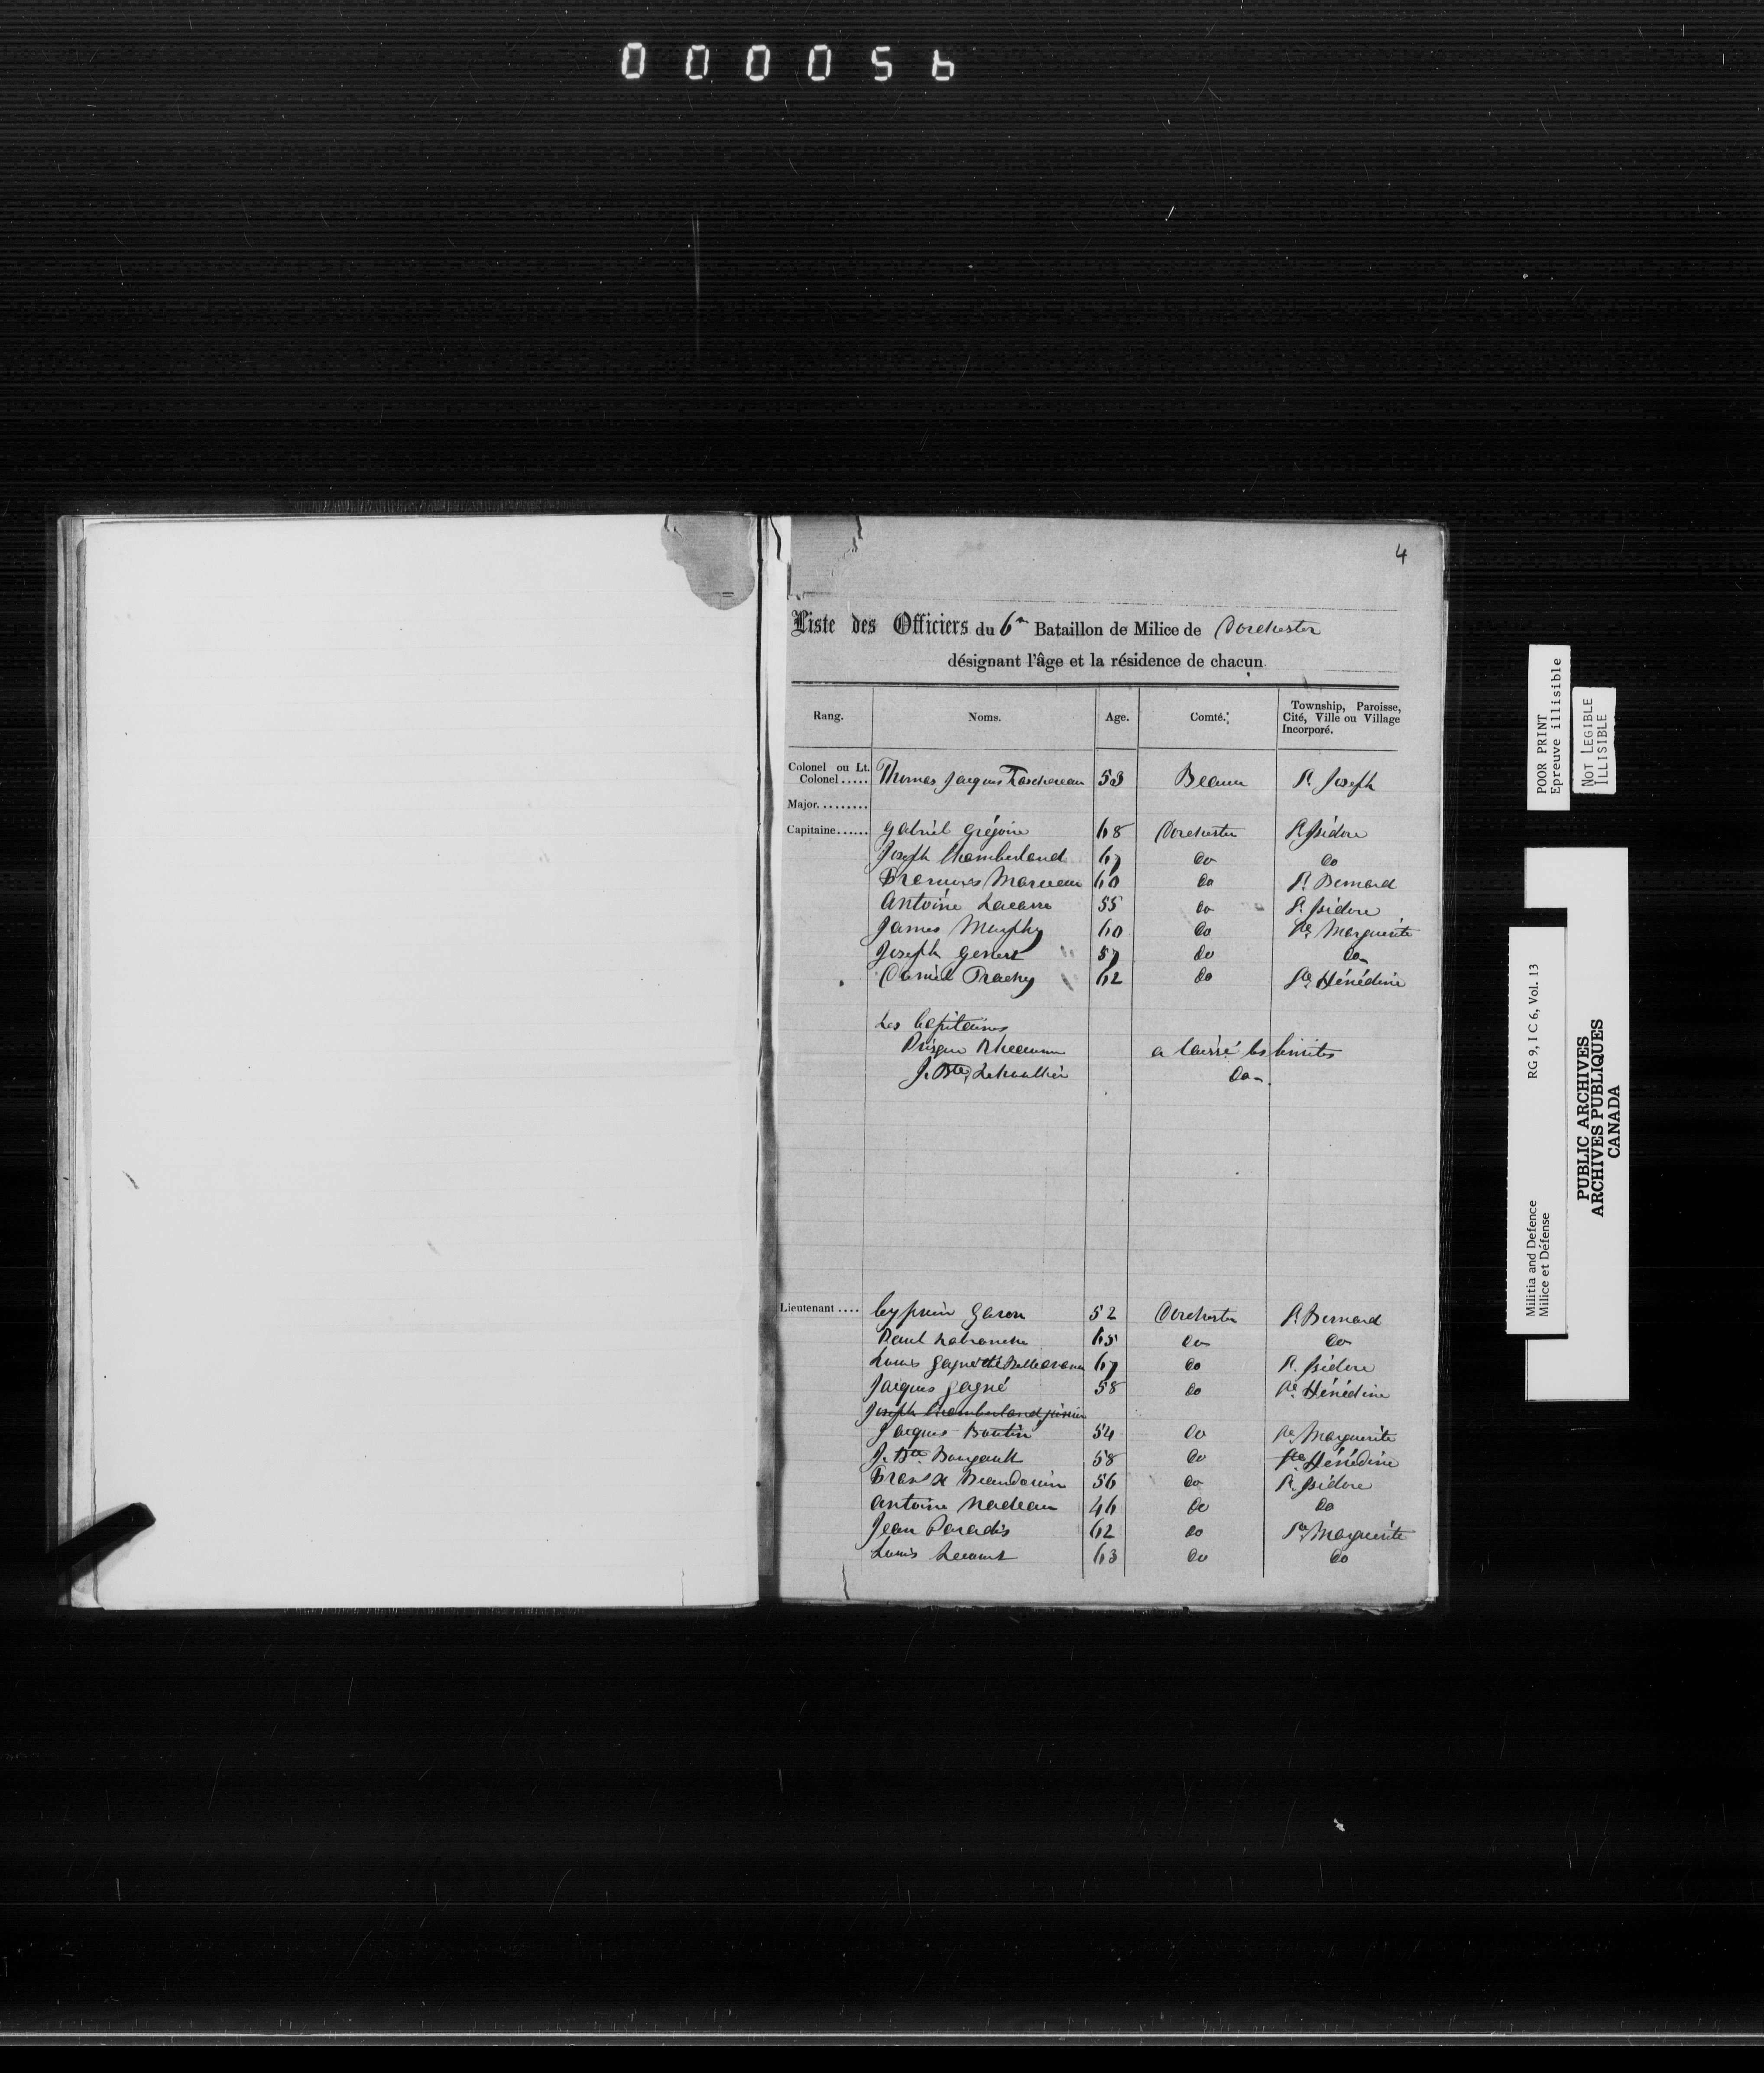 000056
4
Liste des Officiers du 6me Bataillon de Milice de Dorchester
désignant l'âge et la résidence de chacun
Rang. Noms. Age. Comté. Township, Paroisse, Cité, Ville ou Village Incorporé.
Colonel ou Lt. Colonel..... Thomas Jacques Taschereau 53 Beauce St. Joseph
Major.........
Capitaine...... Gabriel Grégoire 68 Dorchester St. Isidore
Joseph Chamberland 67 do do
François Marceau 60 do St. Bernard
Antoine 55 do St. Isidore
James Murphy 60 do Ste. Marguerite
Joseph Genest 57 do do
Daniel Trachy 62 do Ste. Hénédine
Les Capitaines
Prisque Rheaume a laissé les limites
J. Bte. do
Lieutenant.... Cyprien Garon 52 Dorchester St. Bernard
Paul Labranche 65 do do
Louis Gagné dit Bellavance 67 do St. Isidore
Jacques Gagné 58 do Ste. Hénédine
Joseph Chamberland junior
Jacques Boutin 54 do Ste. Marguerite
J. Bte. Bourgault 58 do Ste. Hénédine
Frans X Beaudouin 56 do St. Isidore
Antoine Nadeau 46 do do
Jean Paradis 62 do Ste. Marguerite
Louis 63 do do
POOR PRINT
Epreuve illisible
NOT LEGIBLE
ILLISIBLE
RG 9, I C 6, Vol. 13
Militia and Defence
Milice et Défense
PUBLIC ARCHIVES
ARCHIVES PUBLIQUES
CANADA